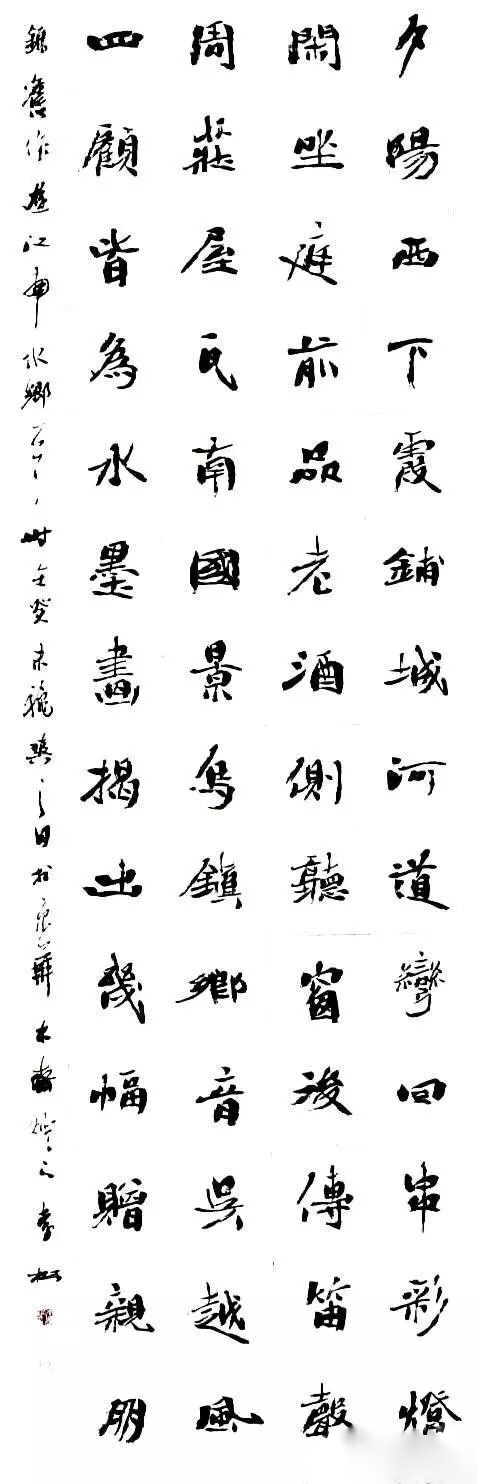 夕陽西下霞鋪城河道彎回串彩燈
閑坐庭前品老酒側聽窗後傳笛聲
周莊屋瓦南國景烏鎮鄉音吳越風
四顧皆為水墨畫揭出幾幅贈親朋
錄舊作遊江南水鄉 時在癸未 之日於 華